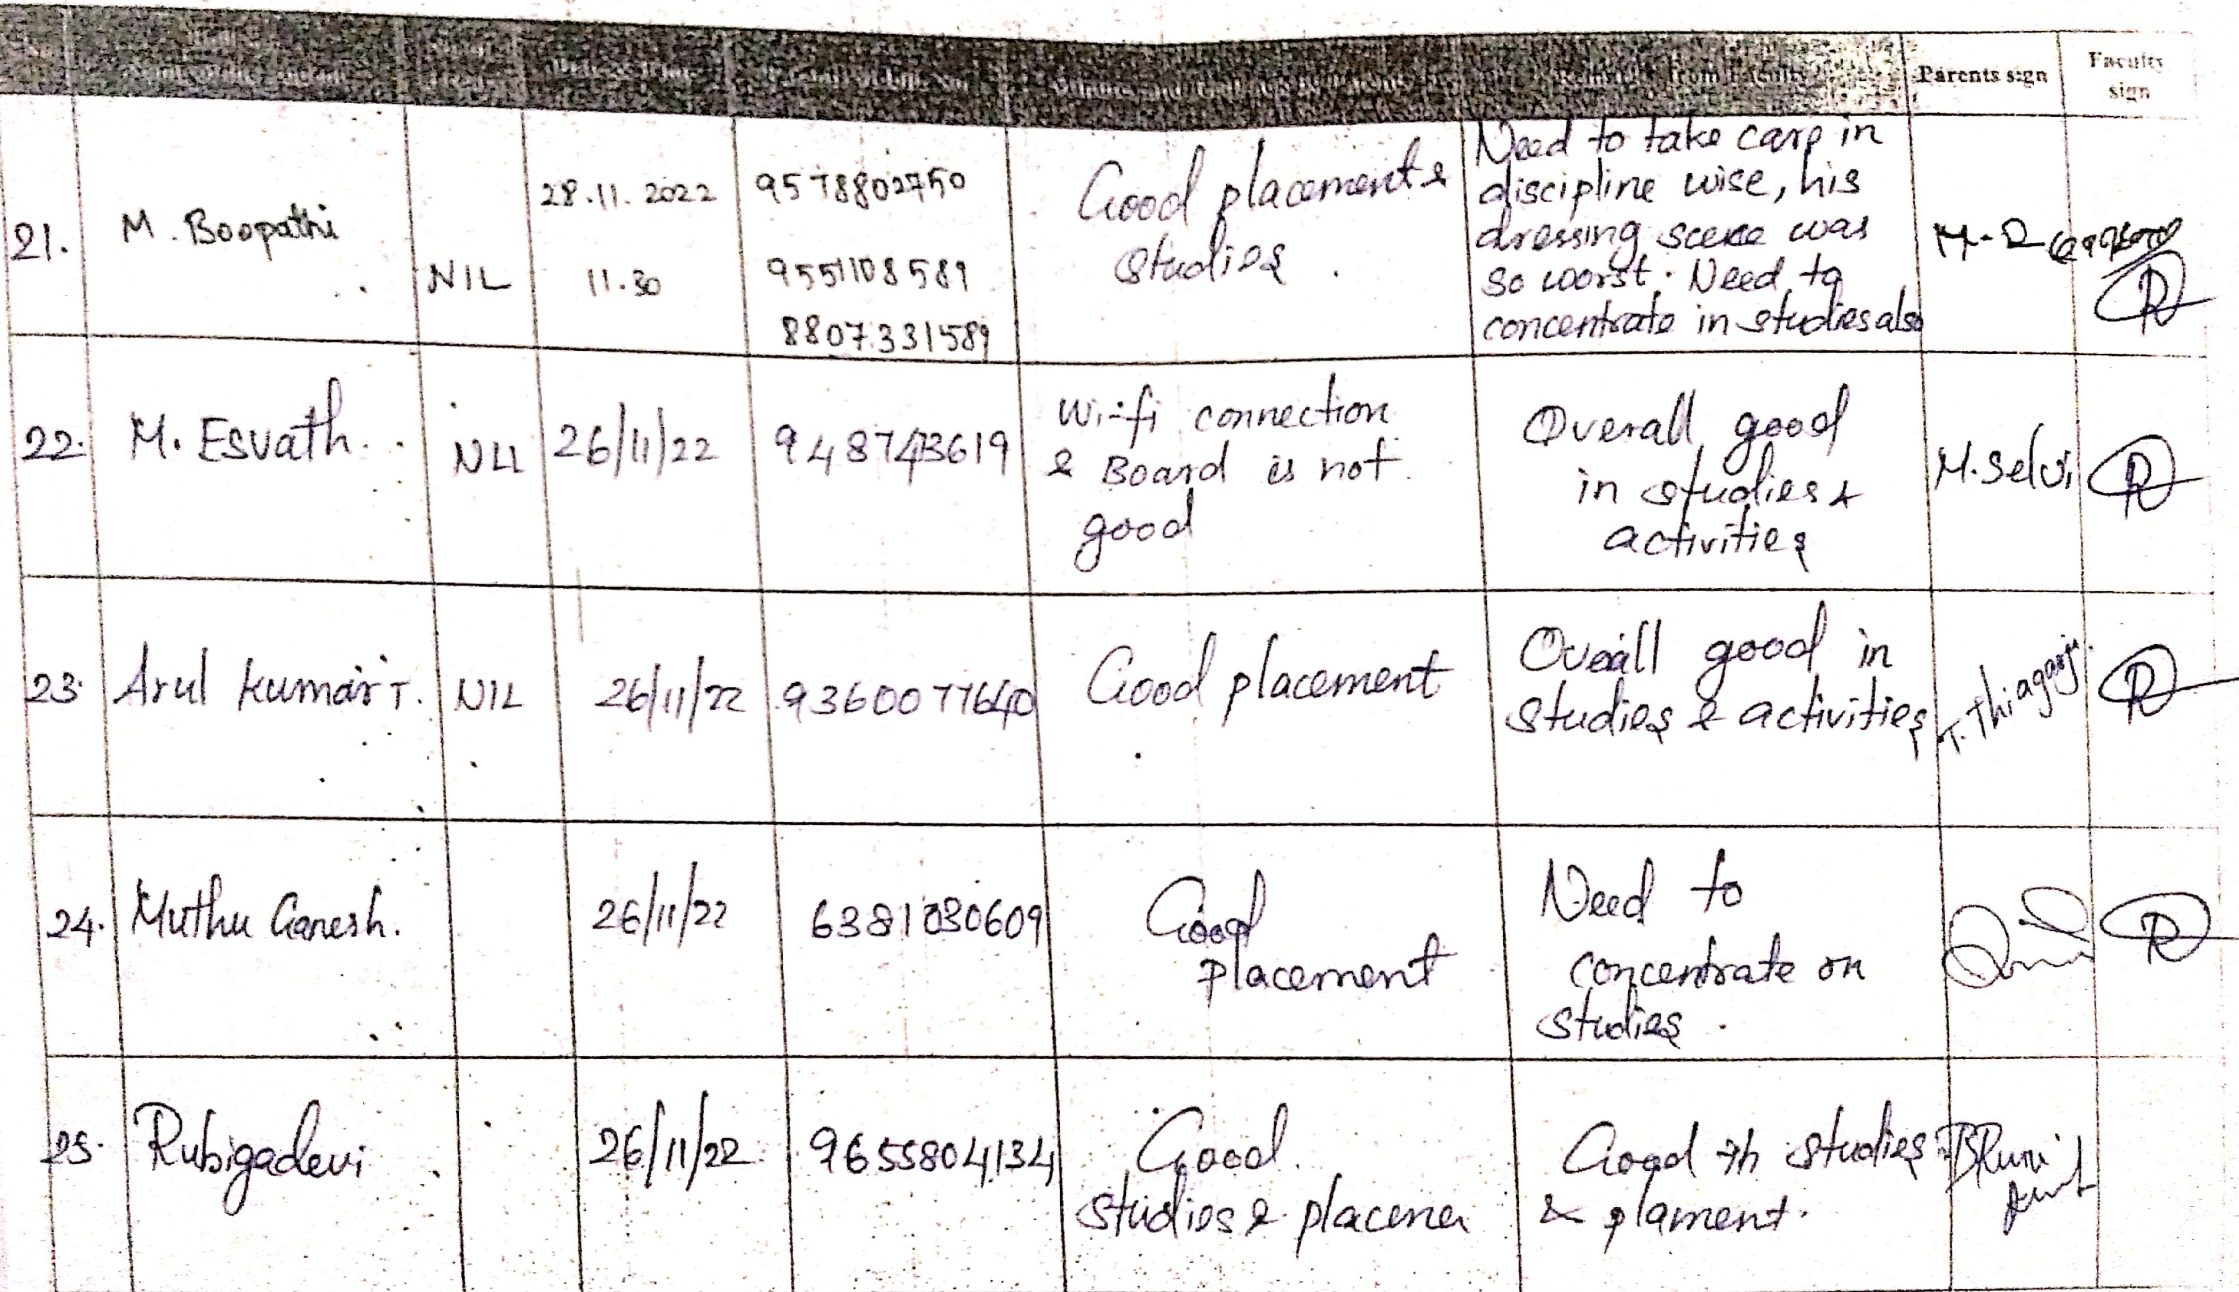 Parents sign
Faculty
sign
21. M. Boopathi NIL
28.11.2022
11.30
9578802750
9551108589
8807331589
Good placement &
studies.
Need to take care in
discipline wise, his
dressing scene was
so worst. Need to
concentrate in studies also
22. M. Esvath. NIL 26/11/22 9487413619
Wi-fi connection
& Board is not
good
Overall good
in studies &
activities
M. Selvi
23. Arul kumar T. NIL 26/11/22 9360077640
Good placement
Overall good in
studies & activities
T. Thiagaraju.
24. Muthu Ganesh. 26/11/22 6381030609
Good
placement
Need to
concentrate on
studies.
25. Rubigadevi 26/11/22 9655804134
Good.
studies & placemen
Good in studies
& plament.